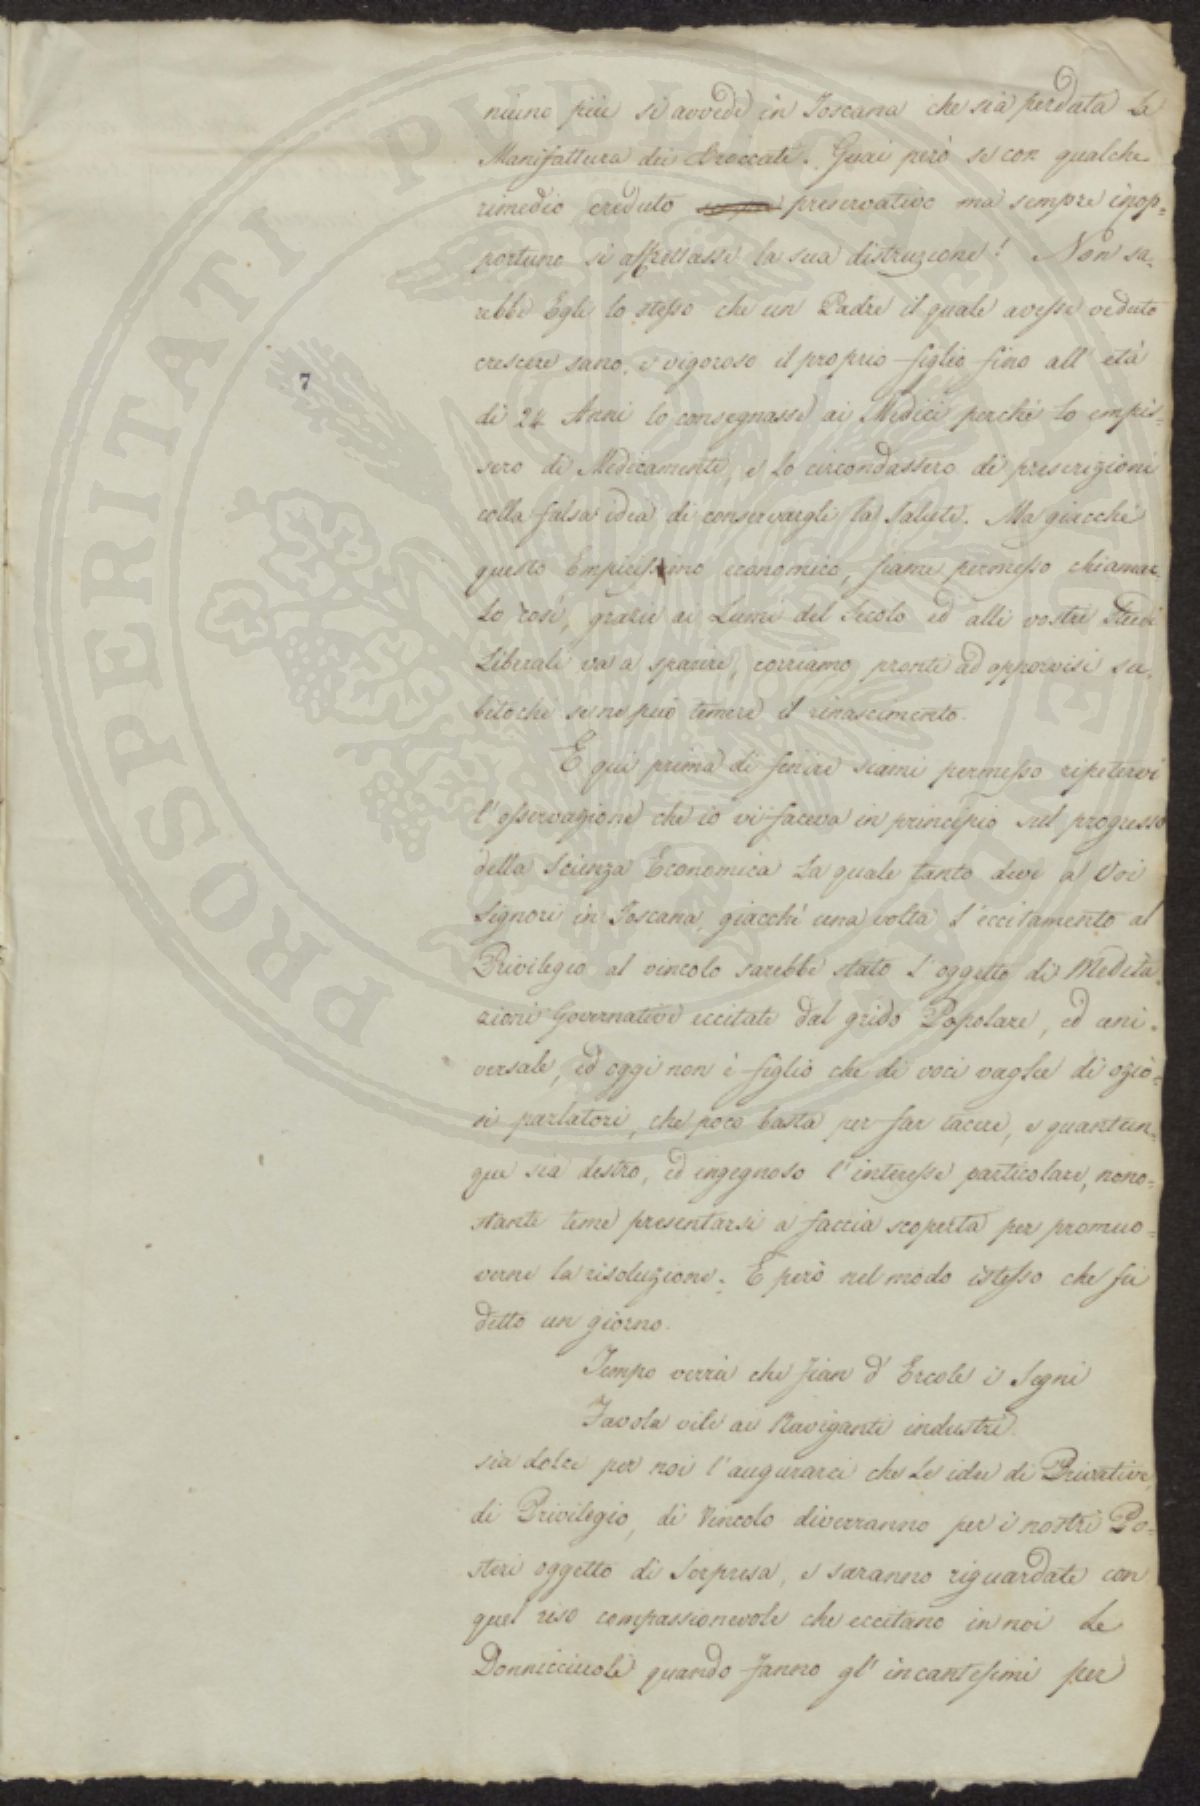 niuno più si avvede in Toscana che sia perduta la
Manifattura dei Broccati. Guai però se con qualche
rimedio creduto preservativo ma sempre inop=
portuno si affrettasse la sua distruzione! Non sa=
rebbe Egli lo stesso che un Padre il quale avesse veduto
crescere sano, e vigoroso il proprio figlio fino all' età
di 24 Anni lo consegnasse ai Medici perchè lo empis=
sero di Medicamenti, e lo circondassero di prescrizioni
colla falsa idea di conservargli la Salute. Ma giacchè
questo Empirissimo economico, siami permesso chiamar=
lo così, grazie ai Lumi del Secolo ed alli vostri Studi
Liberali va a sparire, corriamo pronti ad opporvisi su=
bitochè se ne può temere il rinascimento.
E quì prima di finire siami permesso ripetervi
l'osservazione che io vi faceva in principio sul progresso
della Scienza Economica la quale tanto deve a Voi
Signori in Toscana, giacchè una volta l'eccitamento al
Privilegio al vincolo sarebbe stato l'oggetto di Medita
zioni Governative eccitate dal grido Popolare, ed uni=
versale, ed oggi non è figlio che di voci vaghe di ozio=
si parlatori, che poco basta per far tacere, e quantun=
que sia destro, ed ingegnoso l'interesse particolare, nono=
stante teme presentarsi a faccia scoperta per promuo=
verne la risoluzione. E però nel modo istesso che fu
detto un giorno.
Tempo verrà che fian d'Ercole i Segni
Favola vile ai Naviganti industri.
sia dolce per noi l'augurarci che le idee di Privative,
di Privilegio, di Vincolo diverranno per i nostri Po=
steri oggetto di Sorpresa, e saranno riguardate con
quel riso compassionevole che eccitano in noi le
Donnicciuole quando fanno gl' incantesimi per
7
PROSPERITATI PUBLICAE AUGENDAE